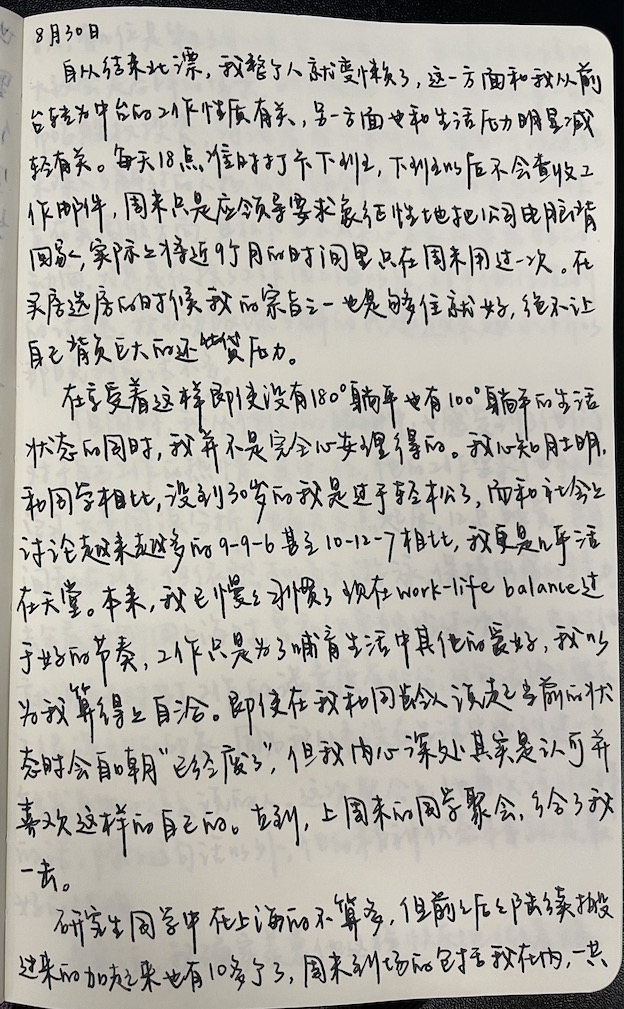 8月30日
自从结束北漂，我整个人就变懒了，这一方面和我从前
台转为中台的工作性质有关，另一方面也和生活压力明显减
轻有关。每天18点准时打卡下班，下班以后不会查收工
作邮件，周末只是应领导要求象征性地把公司电脑背
回家，实际上将近9个月的时间里只在周末用过一次。在
买房选房的时候我的宗旨之一也是够住就好，绝不让
自己背负巨大的还贷压力。
在享受着这样即使没有180°躺平也有100°躺平的生活
状态的同时，我并不是完全心安理得的。我心知肚明，
和同学相比，没到30岁的我是过于轻松了，而和社会上
讨论越来越多的9-9-6甚至10-12-7相比，我更是几乎活
在天堂。本来，我已慢慢习惯了现在work-life balance过
于好的节奏，工作只是为了哺育生活中其他的爱好，我以
为我算得上自洽。即使在我和同龄人谈起当前的状
态时会自嘲“已经废了”，但我内心深处其实是认可并
喜欢这样的自己的。直到，上周末的同学聚会，给了我
一击。
研究生同学中在上海的不算多，但前前后后陆续投
过来的加起来也有10多个了，周末到场的包括我在内，一共